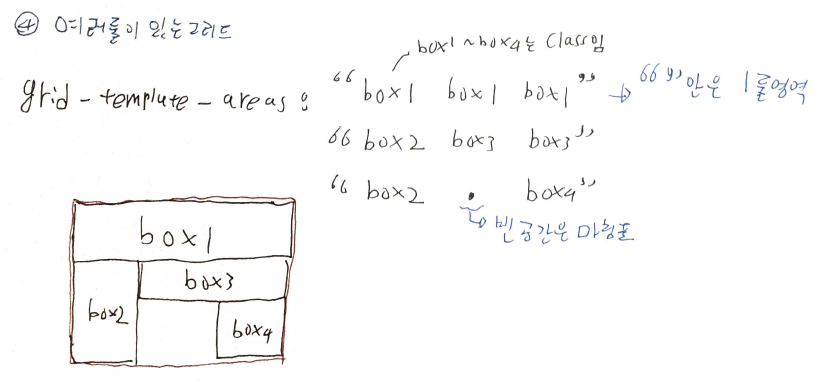 ④ 여러룰이 있는그리드
box1 ~ box4는 Class임
grid - template - areas : “ box1 box1 box1 ” → “ ” 안은 1룰영역
“ box2 box3 box3 ”
“ box2 . box4 ”
↳ 빈 공간은 마침표
box1
box3
box2
box4